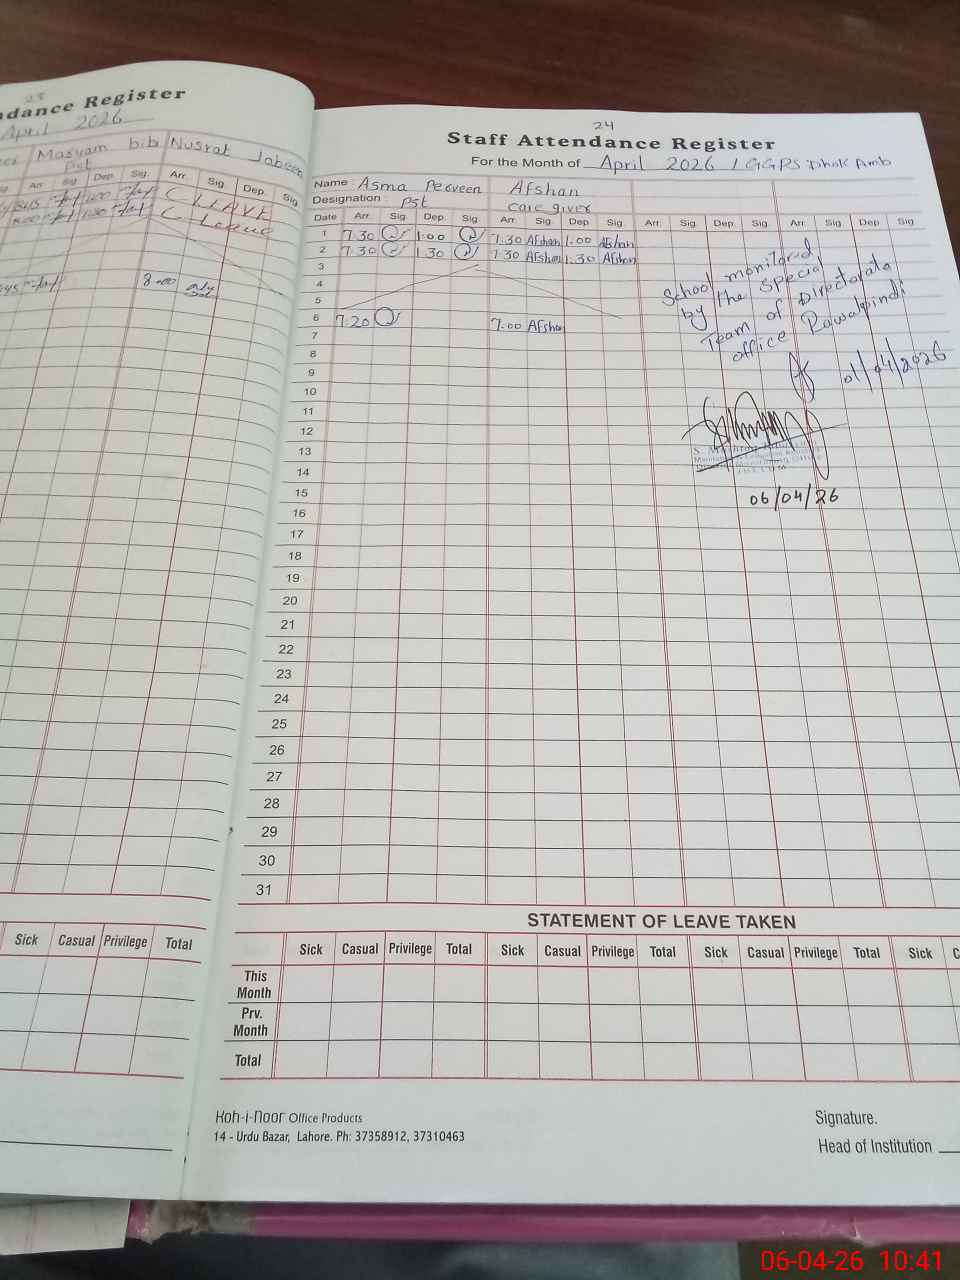 23
ndance Register
April 2026
Maryam bibi
Nusrat Jabeen
Pst
Arr. Sig. Dep. Sig. Arr. Sig. Dep. Sig.
C LEAVE
C Leave
8:00
Sick Casual Privilege Total
24
Staff Attendance Register
For the Month of April 2026 / GGPS Dhok Amb
Name : Asma Perveen Afshan
Designation : Pst care giver
Date Arr. Sig. Dep. Sig. Arr. Sig. Dep. Sig. Arr. Sig. Dep. Sig. Arr. Sig. Dep. Sig.
1 7.30 1.00 7.30 Afshan 1.00 Afshan
2 7.30 1.30 7.30 Afshan 1.30 Afshan
3
4
5
6 7.20 7.00 Afshan
7
8
9
10
11
12
13
14
15
16
17
18
19
20
21
22
23
24
25
26
27
28
29
30
31
School monitored
by the Special
Team of Directorate
office Rawalpindi
01/04/2026
06/04/26
STATEMENT OF LEAVE TAKEN
Sick Casual Privilege Total Sick Casual Privilege Total Sick Casual Privilege Total Sick C
This Month
Prv. Month
Total
Koh-i-Noor Office Products
14 - Urdu Bazar, Lahore. Ph: 37358912, 37310463
Signature.
Head of Institution
06-04-26 10:41